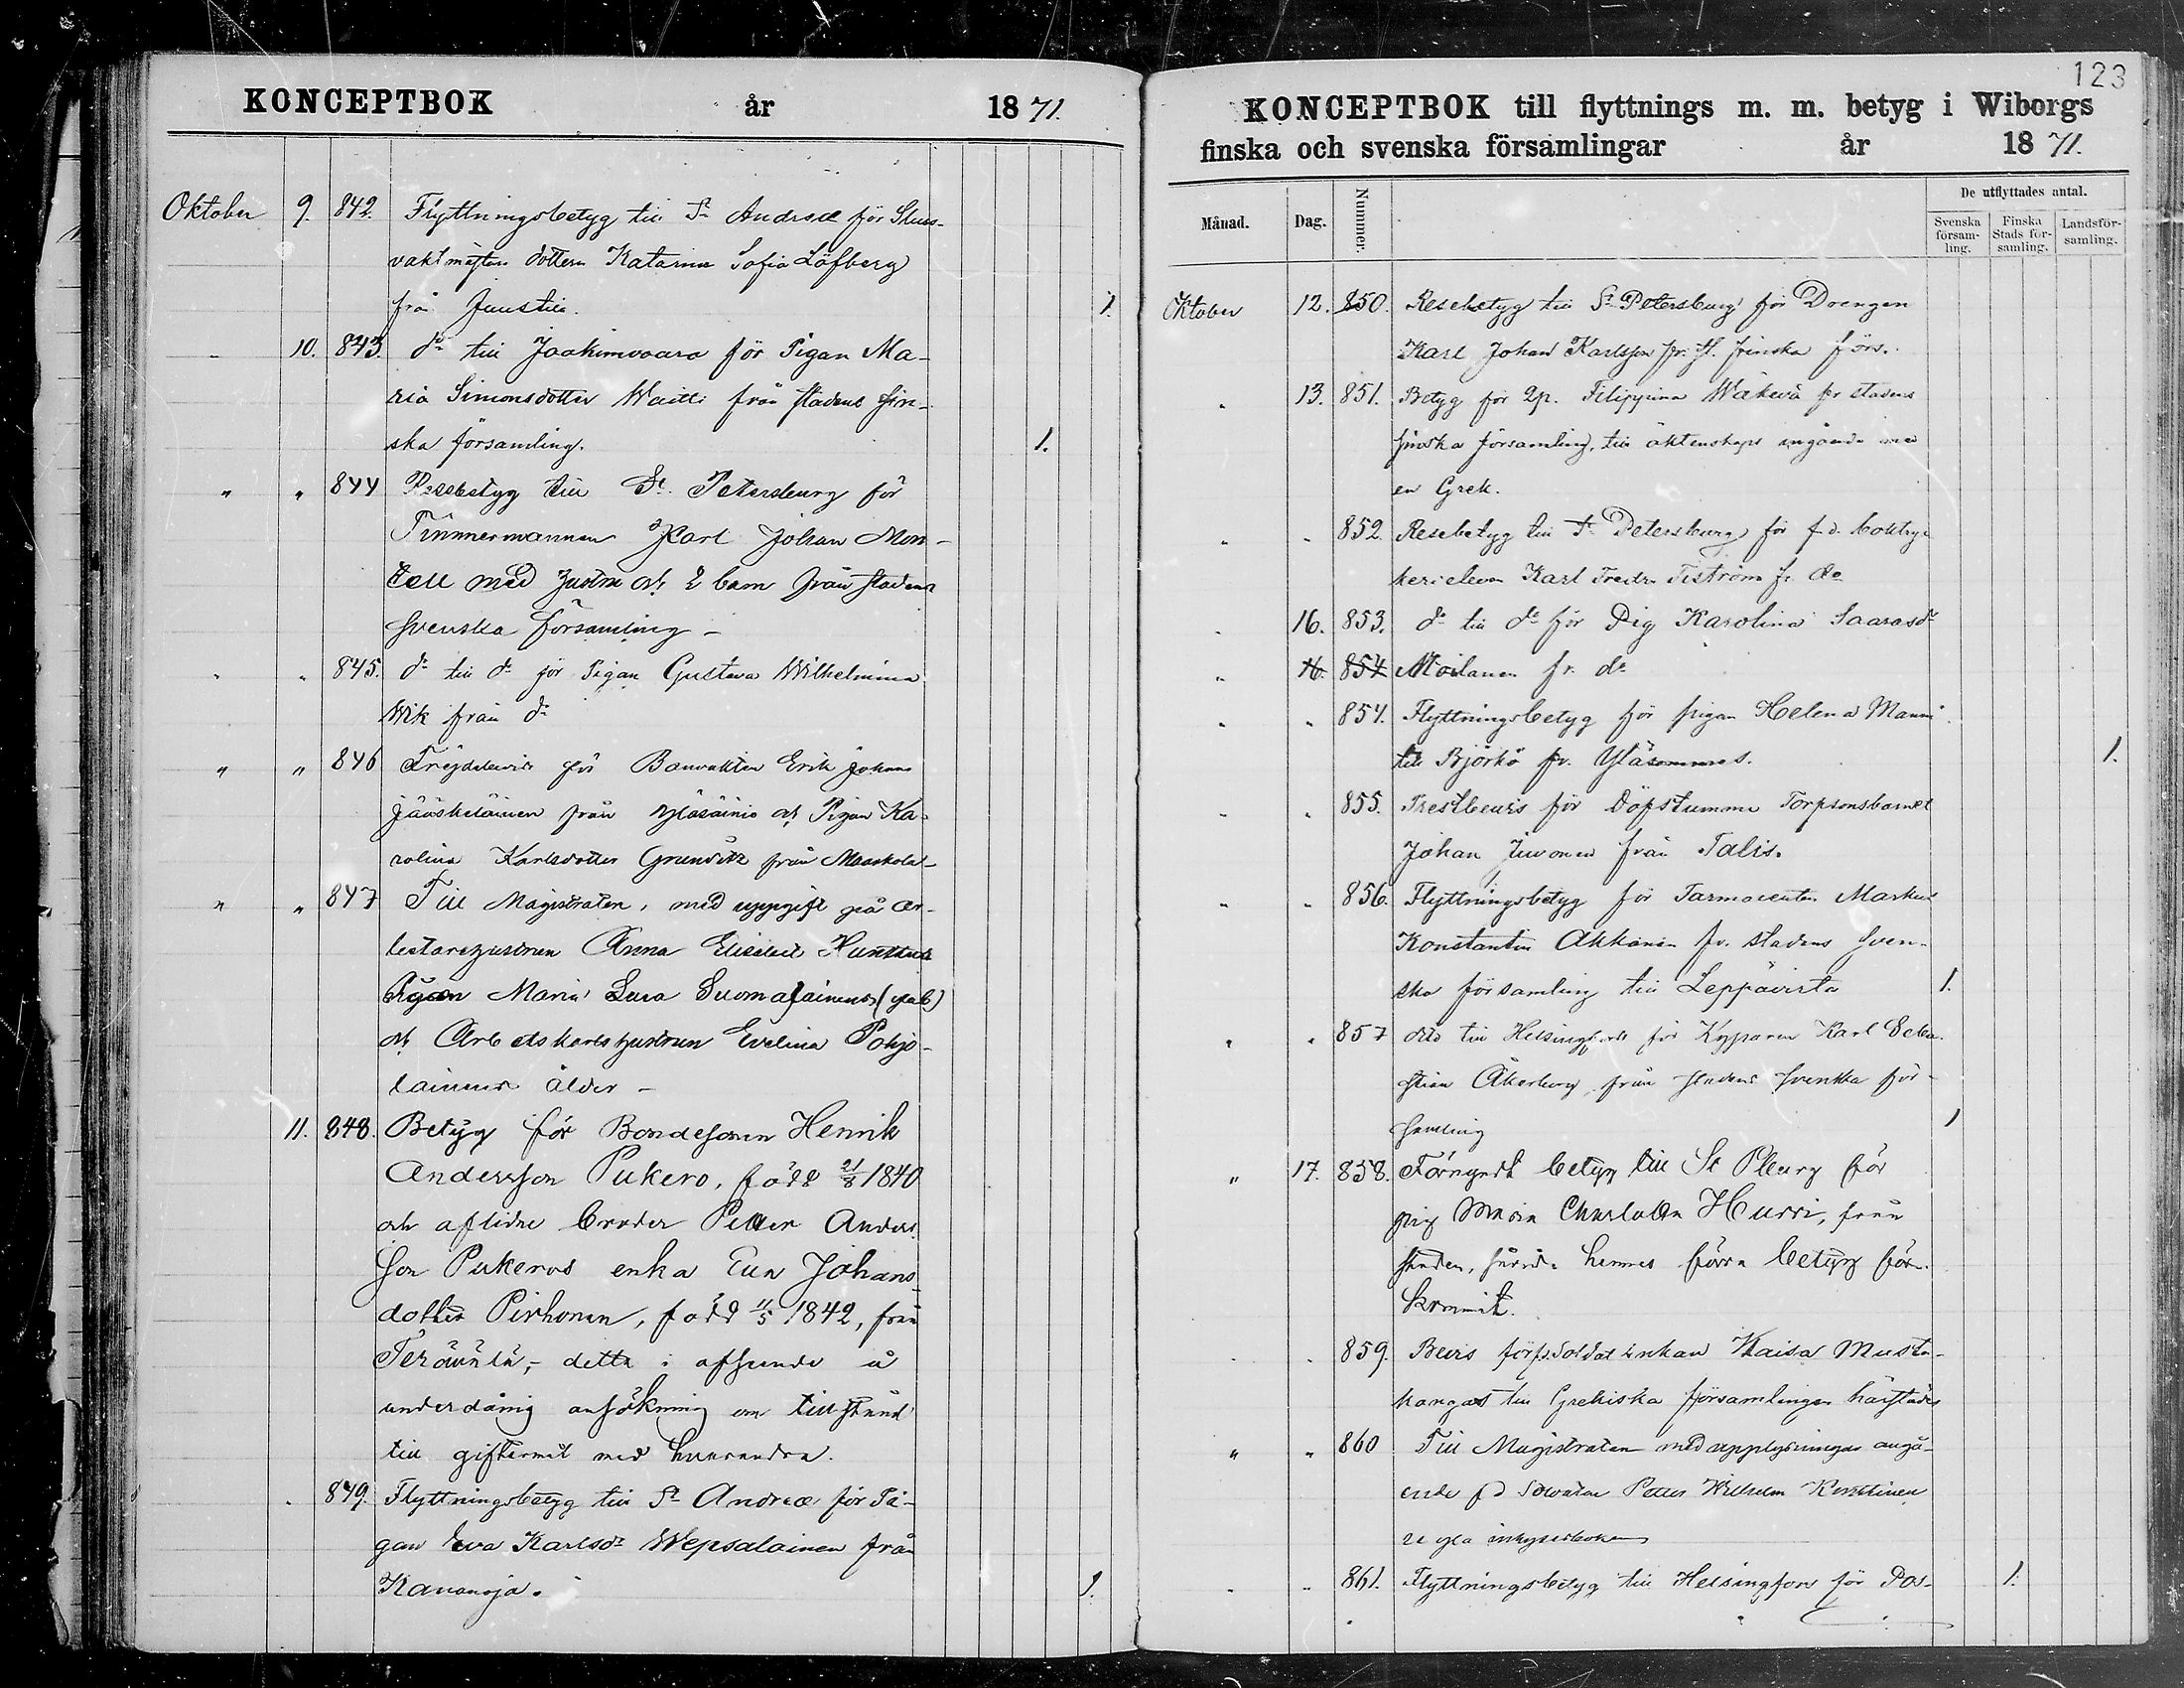 KONCEPTBOK år 1871.
Oktober 9. 842. Flyttningsbetyg till St Andreæ för Sluss-
vaktmästare dottern Katarina Sofia Löfberg
från Juustila. 1.
" 10. 843. do till Jaakimvaara för Pigan Ma-
ria Simonsdotter Waitti från stadens fin-
ska församling. 1.
" " 844 Resebetyg till St. Petersburg för
Timmermannen Karl Johan Mon-
tell med hustru och 2 barn från stadens
svenska församling -
" " 845. do till do för Pigan Gustava Wilhelmina
Wik från do
" " 846 Frejdebevis för Banvakten Erik Johans
Jääskeläinen från Yläsäiniö och Pigan Ka-
rolina Karlsdotter Grundström från Maaskola-
" " 847 Till Magistraten, med uppgift på Ar-
betarehustrun Anna Elisabet
Pigan Maria Lovisa Suomalainens
och Arbetskarlshustrun Evelina Pohjo-
lainens ålder -
11. 848. Betyg för Bondesonen Henrik
Andersson Pukero, född 21/8 1840
och aflidne broder Petter Anders-
son Pukeros enka Eva Johans-
dotter Pirhonen, född 11/5 1842, från
Terävälä, - detta i afseende å
underdånig ansökning om tillstånd
till giftermål med hvarandra.
" 849. Flyttningsbetyg till St Andreæ för Pi-
gan Eva Karlsdr Wepsalainen från
Kananoja. 1.
123
KONCEPTBOK till flyttnings m. m. betyg i Wiborgs
finska och svenska församlingar år 1871.
Månad. Dag. Nummer. De utflyttades antal.
Svenska försam-ling. Finska Stads för-samling. Landsför-samling.
Oktober 12. 850. Resebetyg till St Petersburg för Drengen
Karl Johan Karlsson fr. st. finska förs.
" 13. 851. Betyg för Qp. Filippina Wäkevä fr stadens
finska församling, till äktenskaps ingående med
en Grek.
" " 852. Resebetyg till St Petersburg för f.d. boktryc-
kerieleven Karl Fredr. Tiström fr. do
" 16. 853. do till do för Pig Karolina Saarasdr
" 16. 854 Moilanen fr. do
" " 854. Flyttningsbetyg för pigan Helena Manni
till Björkö fr. Yläsommes. 1.
" " 855. Prestbevis för Döfstumma Torpsonsbarnet
Johan Juvonen från Talis.
" " 856. Flyttningsbetyg för Farmaceuten Markus
Konstantin Akkanen fr. stadens sven-
ska församling till Leppävirta 1.
" " 857 dito till Helsingfors för Kyparen Karl Seba-
stian Åkerberg från stadens svenska för-
samling 1
" 17. 858. Förnyadt betyg till St Pburg för
pig Maria Charlotta Hurri, från
staden, sedan hennes förra betyg för-
kommit.
" " 859. Bevis för f.Soldat Enkan Kaisa Musta-
kangas till Grekiska församlingen härstädes
" " 860 Till Magistraten med upplysningar angå-
ende fd Soldaten Petter Wilhelm Konttinen
" " 861. Flyttningsbetyg till Helsingfors för Pos- 1.